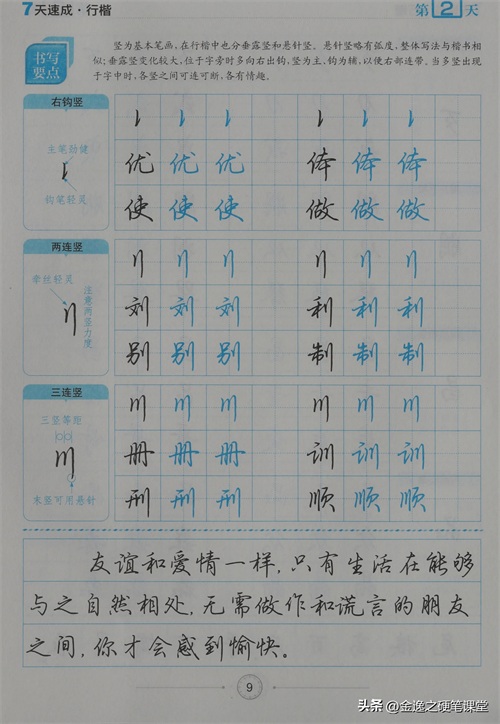 7天速成·行楷
第2天
书写要点
竖为基本笔画，在行楷中也分垂露竖和悬针竖。悬针竖略有弧度，整体写法与楷书相
似；垂露竖变化较大，位于字旁时多向右出钩，竖为主、钩为辅，以便右部连带。当多竖出现
于字中时，各竖之间可连可断，各有情趣。
右钩竖
主笔劲健
钩笔轻灵
优 优 优 体 体 体
使 使 使 做 做 做
两连竖
牵丝轻灵
注意两竖力度
刘 刘 刘 利 利 利
别 别 别 制 制 制
三连竖
三竖等距
末竖可用悬针
川 川 川 川 川 川
册 册 册 训 训 训
刑 刑 刑 顺 顺 顺
友谊和爱情一样，只有生活在能够
与之自然相处，无需做作和谎言的朋友
之间，你才会感到愉快。
9
头条 @金逸之硬笔课堂